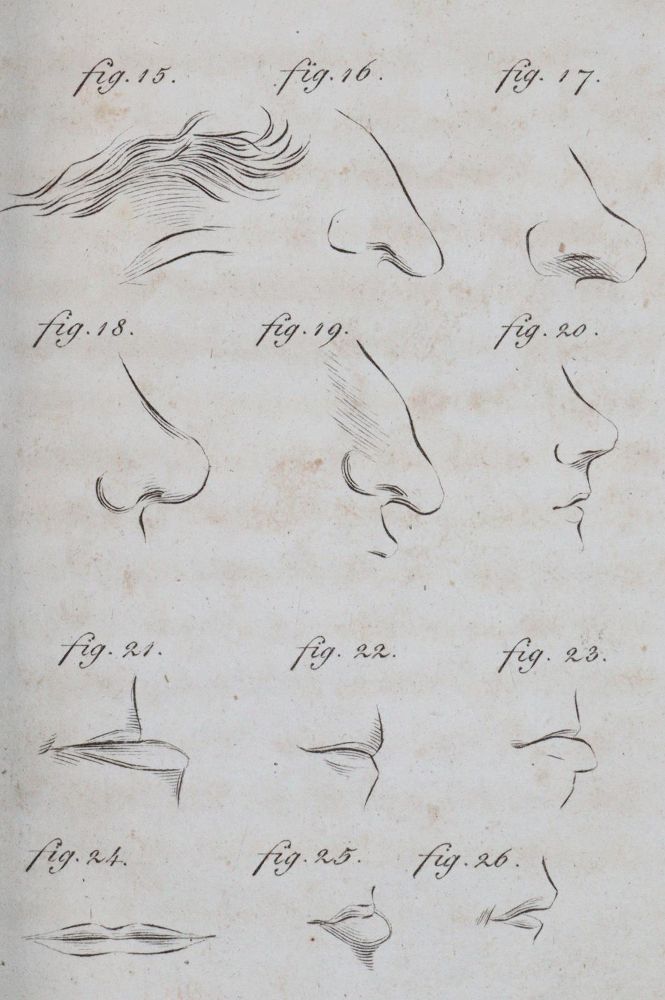 fig. 15.
fig. 16.
fig. 17.
fig. 18.
fig. 19.
fig. 20.
fig. 21.
fig. 22.
fig. 23.
fig. 24.
fig. 25.
fig. 26.